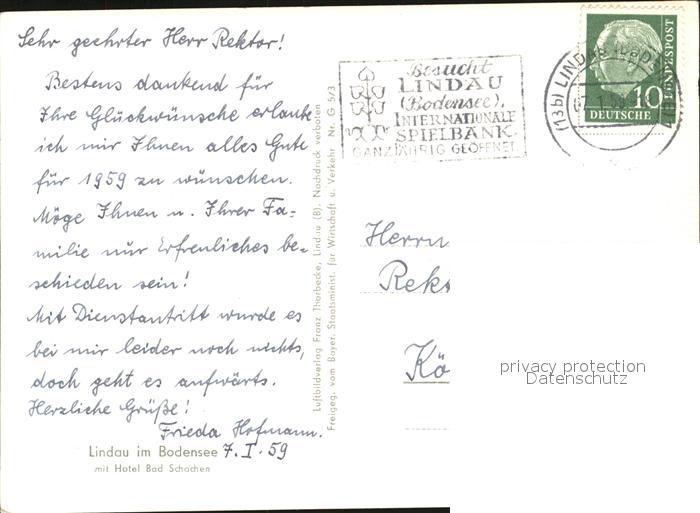 Sehr geehrter Herr Rektor!
Bestens dankend für
Ihre Glückwünsche erlaube
ich mir Ihnen alles Gute
für 1959 zu wünschen.
Möge Ihnen u. Ihrer Fa-
milie nur Erfreuliches be-
schieden sein!
Mit Dienstantritt wurde es
bei mir leider noch nichts,
doch geht es aufwärts.
Herzliche Grüße!
Frieda Hofmann.
7.I.59
Lindau im Bodensee
mit Hotel Bad Schachen
Luftbildverlag Franz Thorbecke, Lindau (B). Nachdruck verboten
Freigeg. vom Bayer. Staatsminist. für Wirtschaft u. Verkehr Nr. G 5/3
Besucht
LINDAU
(Bodensee),
INTERNATIONALE
SPIELBANK.
GANZJÄHRIG GEÖFFNET.
(13b) LINDAU
10
DEUTSCHE
BUNDESPOST
Herrn
Rek
Kö
privacy protection
Datenschutz